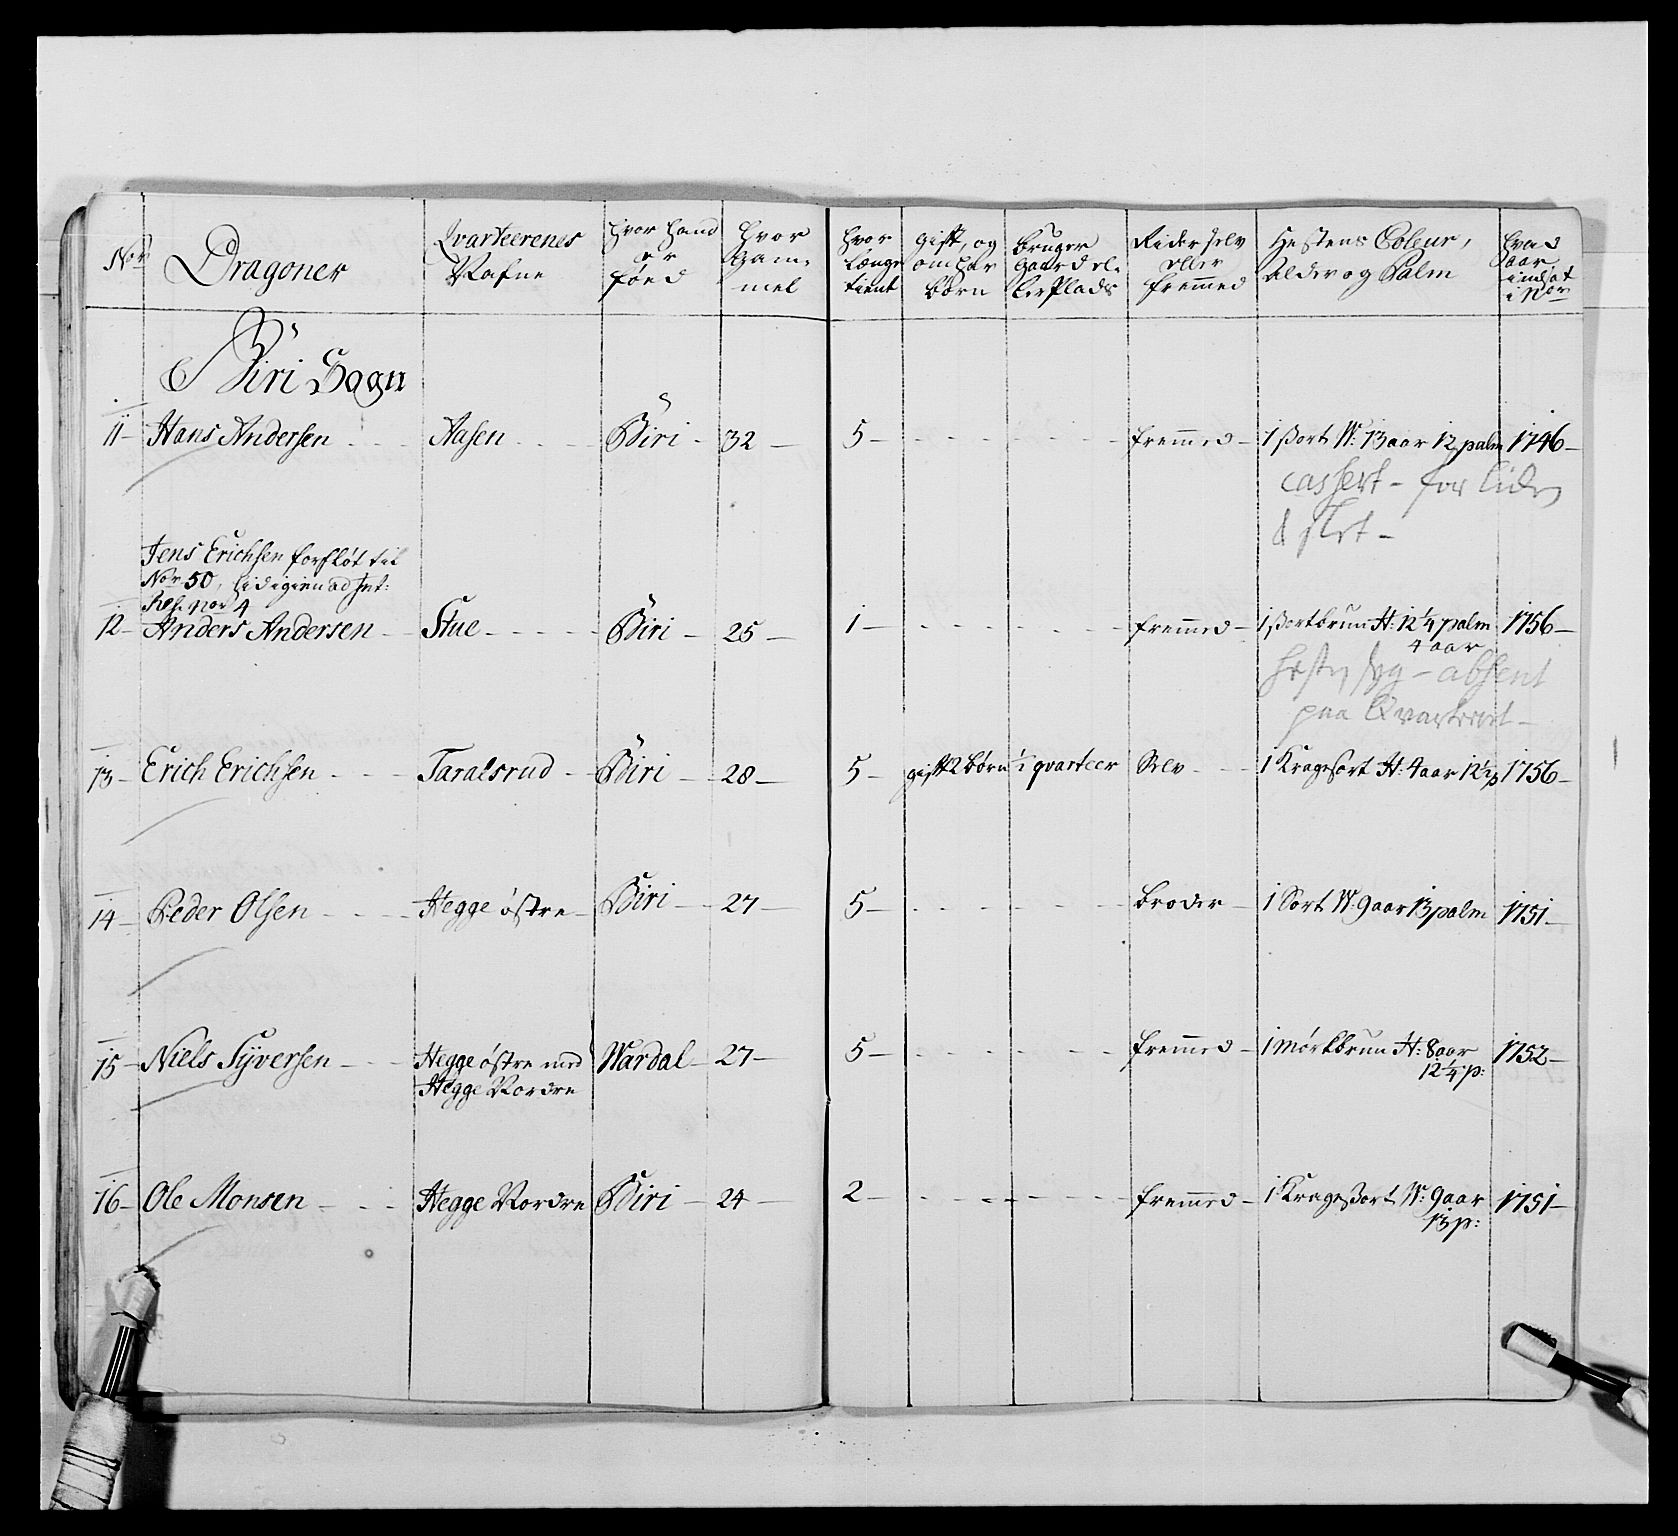 Nor
Dragoner
Qvarteerenes
Nafne
Hvor Hand
er
föed
Hvor
Gam-
mel
Hvor
Længe
tient
gift, og
om har
börn
bruger
gaard el-
ler Plads
Rider selv
eller
fremmed
Hestens Coleur,
Alder og Palm
Hvad
aar
indsat
i Nor
Biri Sogn
11 - Hans Andersen - - - Aasen - - - Biri - 32 - 5 - - - - fremmed - 1 sort W: 13 aar 12 palm 1746 -
cassert - for liden
& slet -
Jens Erichsen forfløt til
Nor 50,
Nor 4
12 - Anders Andersen - Stue - - - - Biri - 25 - 1 - - - - fremmed - 1 sortbrun H: 12 1/4 palm 1756 -
4 aar
syg - absent
paa Qvarteret -
13 - Erich Erichsen - - - Taralsrud - - Biri - 28 - 5 - gift 2 börn 1/1 qvarteer Selv - - 1 Kragesort H: 4 aar 12 1/2 p 1756 -
14 - Peder Olsen - - - Hegge østre - Biri - - 27 - 5 - - - - broder - 1 Sort W. 9 aar 13 palm 1751 -
15 - Niels Syversen - - - Hegge østre med Wardal - 27 - 5 - - - - fremmed - 1 mörkbrun H: 8 aar 1752 -
Hegge Nordre
12 1/4 p:
16 - Ole Monsen - - - Hegge Nordre Biri - 24 - 2 - - - - fremmed - 1 Kragesort W: 9 aar 1751 -
13 p: